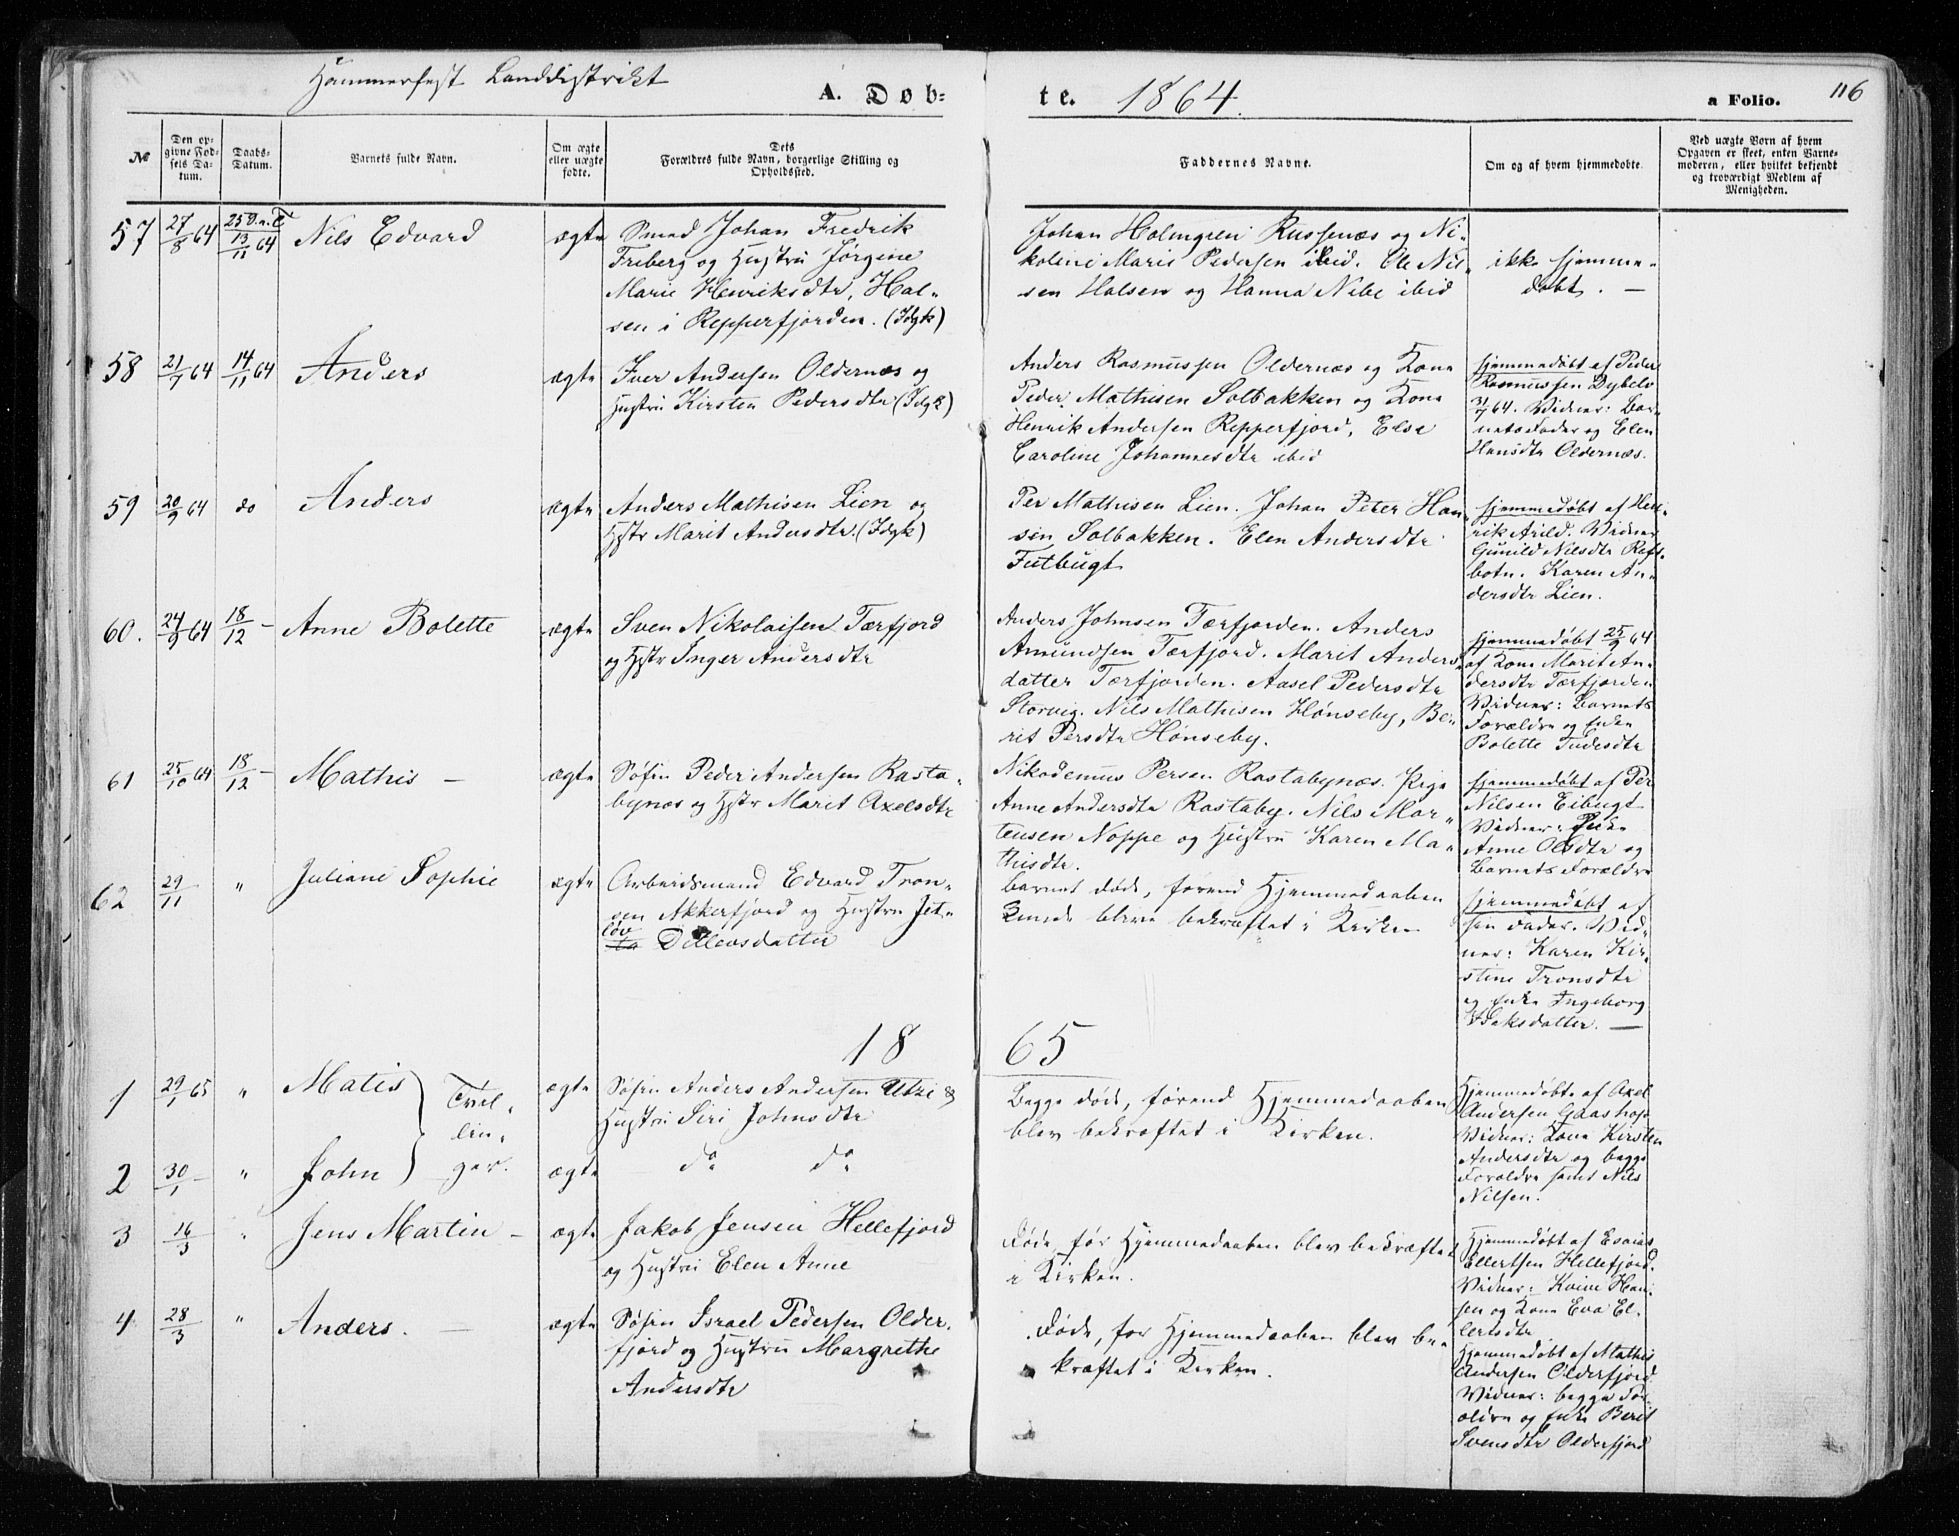 Hammerfest Landdistrikt
A. Døb-
te.
1864.
a Folio.
116
№
Den op-
givne Fød-
sels Da-
tum.
Daabs-
Datum.
Barnets fulde Navn.
Om ægte
eller uægte
fødte.
Dets
Forældres fulde Navn, borgerlige Stilling og
Opholdssted.
Faddernes Navne.
Om og af hvem hjemmedøbte.
Ved uægte Børn af hvem
Opgaven er skeet, enten Barne-
moderen, eller hvilket bekjendt
og troværdigt Medlem af
Menigheden.
57
27/8 64
13/11 64
Nils Edvard
ægte
Smed Johan Fredrik
Friberg og Hustru Jørgine
Marie Henriksdtr, Hal-
sen i Repperfjorden. (Idgk)
Johan Holmgren Russenæs og Ni-
koline Marie Pedersen ibid. Ole Nil-
sen Halsen og Hanna Nibe ibid
ikke hjemme-
døbt. —
58
21/7 64
14/11 64
Anders
ægte
Iver Andersen Oldernæs og
Hustru Kirsten Pedersdtr (Idgk)
Anders Rasmussen Oldernæs og Kone
Peder Mathisen Solbakken og Kone
Henrik Andersen Repperfjord, Else
Caroline Johannesdtr ibid
hjemmedøbt af Peder
Rasmussen Dybelv
31/7 64. Vidner: Bar-
nets Fader og Elen
Hansdtr Oldernæs.
59
20/9 64
do
Anders
ægte
Anders Mathisen Lien og
Hstr Marit Andersdtr. (Idgk)
Per Mathisen Lien. Johan Peter Han-
sen Solbakken. Elen Andersdtr
Futbugt
hjemmedøbt af Hen-
rik Arild. Vidner
Gunild Nilsdtr Raft-
botn. Karen An-
dersdtr Lien.
60.
24/9 64
18/12 —
Anne Bolette
ægte
Sven Nikolaisen Tærfjord
og Hstr Inger Andersdtr
Anders Johnsen Tærfjorden. Anders
Amundsen Tærfjord. Marit Anders-
datter Tærfjorden. Aasel Pedersdtr
Storvig. Nils Mathisen Hønseby, Be-
rit Persdtr Hønseby.
hjemmedøbt 25/9 64
af Kone Marit An-
dersdtr Tærfjorden
Vidner: Barnets
Forældre og Enke
Bolette Tudesdtr
61
25/10 64
18/12 —
Mathis —
ægte
Søfin Peder Andersen Rasta-
bynæs og Hstr Marit Axelsdtr
Nikodemus Persen Rastabynæs. Pige
Anne Andersdtr Rastaby. Nils Mor-
tensen Noppe og Hustru Karen Ma-
thisdtr.
hjemmedøbt af Per
Nilsen Eibugt
Vidner: Enke
Anne Olsdtr og
Barnets Forældre
62
29/11
"
Juliane Sophie
ægte
Arbeidsmand Edvard Tron-
sen Akkerfjord og Hustru Jet-
løv
ta Detlevsdatter
Barnet døde, førend Hjemmedaaben
Kunde blive bekræftet i Kirken
hjemmedøbt af
sin Fader. Vid-
ner: Karen Kir-
stine Tronsdtr
og Enke Ingeborg
Isaksdatter. —
18
65
1
29/1 65
"
Matis
Tvil-
lin-
ger.
ægte
Søfin Anders Andersen Utzi &
Hustru Siri Johnsdtr
Begge døde, førend Hjemmedaaben
blev bekræftet i Kirken.
Hjemmedøbte af Axel
Andersen Gaashop
Vidner: Kone Kirsten
Andersdtr og begge
Forældre samt Nils
Nilsen.
2
30/1 —
"
John
ægte
— do do
3
16/3
"
Jens Martin —
ægte
Jakob Jensen Hellefjord
og Hustru Elen Anne
Døde, før Hjemmedaaben blev bekræftet
i Kirken.
Hjemmedøbt af Esaias
Ellertsen Hellefjord.
Vidner: Kvine Han-
sen og Kone Eva El-
lertsdtr
4
28/3
"
Anders. —
ægte
Søfin Israel Pedersen Older-
fjord og Hustru Margrethe
Andersdtr
Døde, før Hjemmedaaben blev be-
kræftet i Kirken.
Hjemmedøbt af Mathis
Andersen Olderfjord
Vidner: begge For-
ældre og Enke Berit
Svensdtr Olderfjord